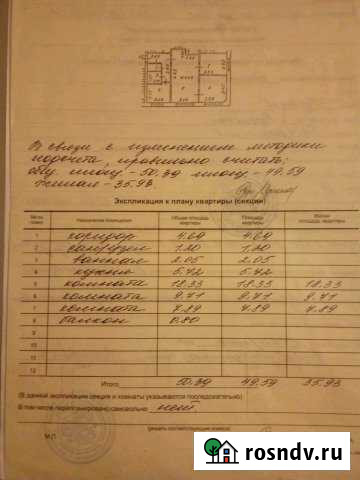 В связи с изменением методики
подсчета, правильно считать:
общ. площ - 50,39 площ - 49,59
жилая - 35.93
Экспликация к плану квартиры (секции)
Назначение помещения Общая площадь квартиры Площадь квартиры Жилая площадь квартиры
1 коридор 4.69 4.69
2 санузел 1.20 1.20
3 ванная 2.05 2.05
4 кухня 5.72 5.72
5 комната 18.33 18.33 18.33
6 комната 9.71 9.71 9.71
7 комната 7.89 7.89 7.89
8 балкон 0.80
9
10
11
12
Итого 50.39 49.59 35.93
(В данной экспликации секция и комнаты указываются последовательно)
В том числе перепланировано самовольно нет
(указать соответствующие номера)
М.П.
rosndv.ru